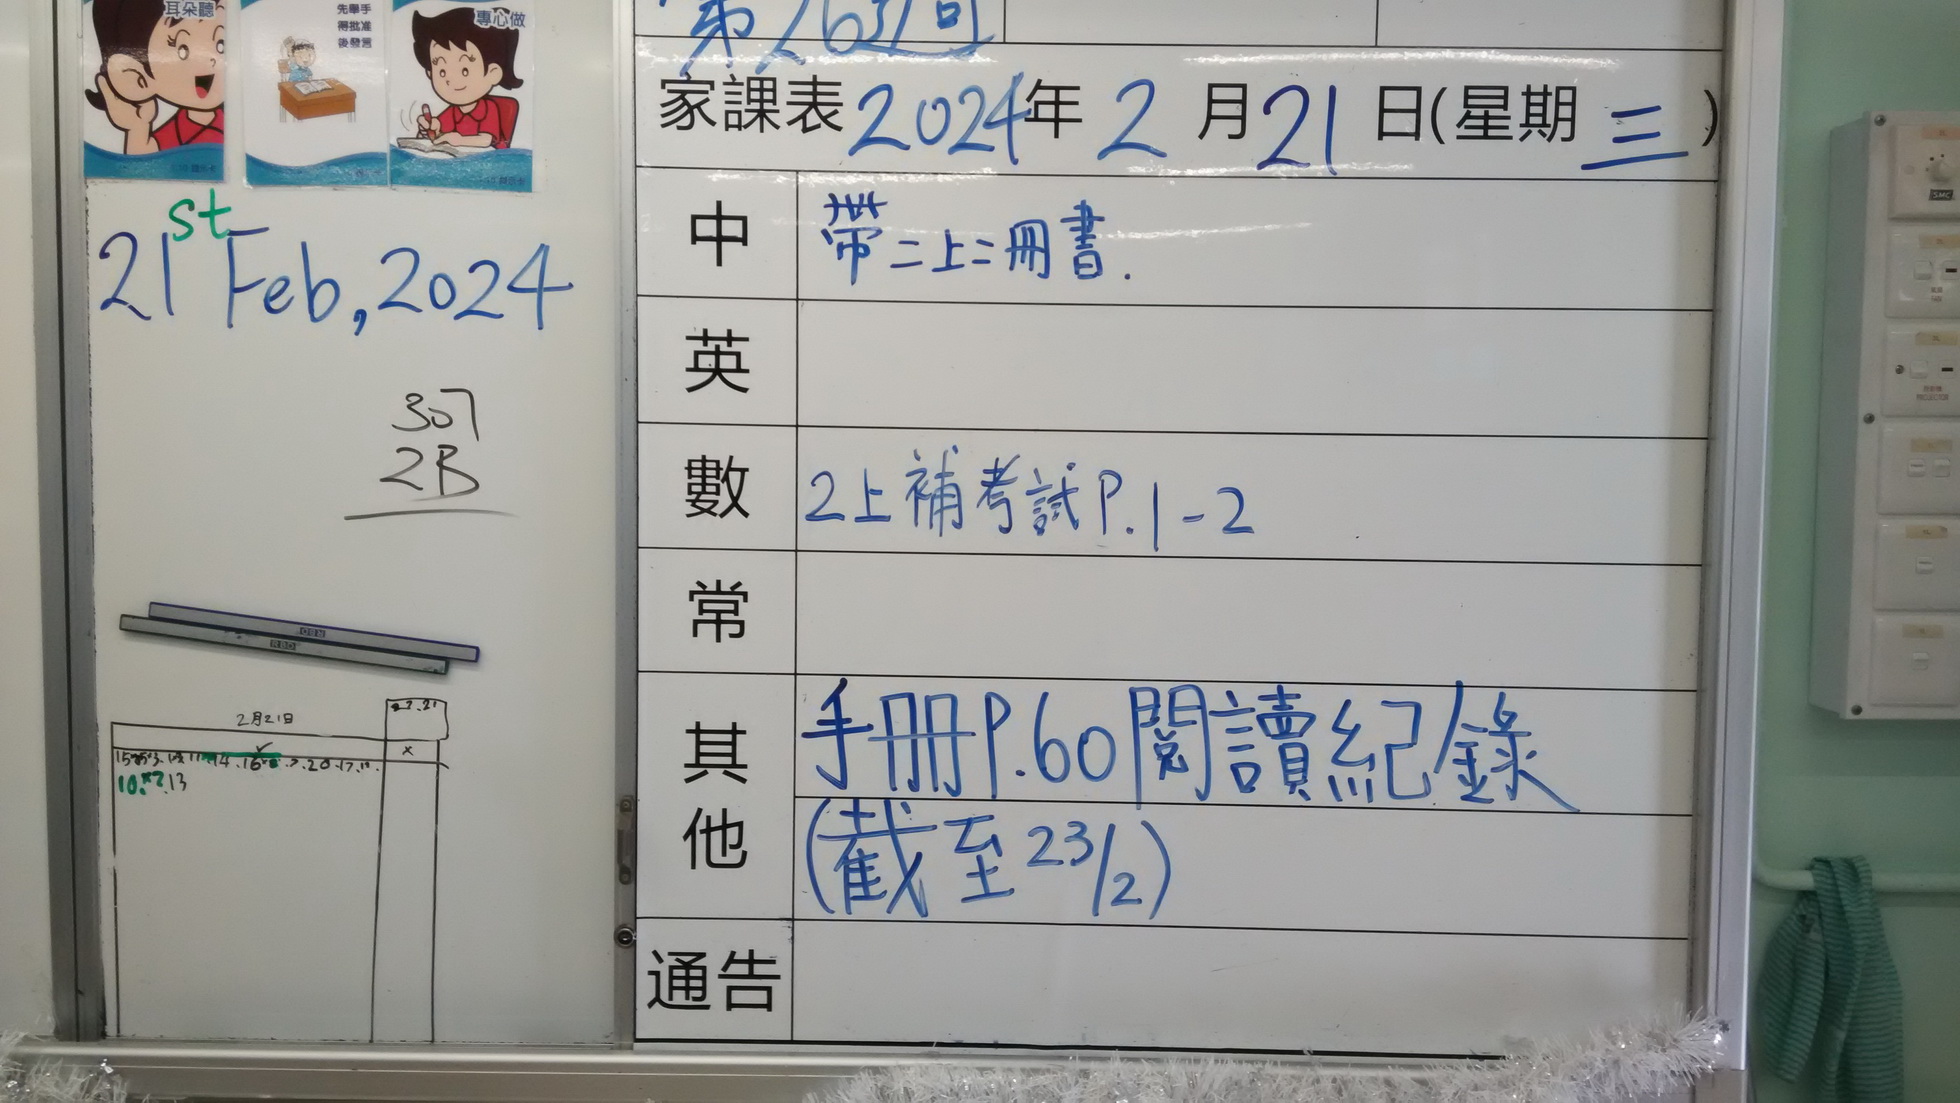 耳朵聽
先舉手
得批准
後發言
專心做
21st Feb, 2024
307
2B
2月21日
✓
x
10
13
家課表 2024年 2 月 21 日(星期 三 )
中 帶二上二冊書.
英
數 2上補考試P.1-2
常
其他 手冊P.60閱讀紀錄
(截至23/2)
通告